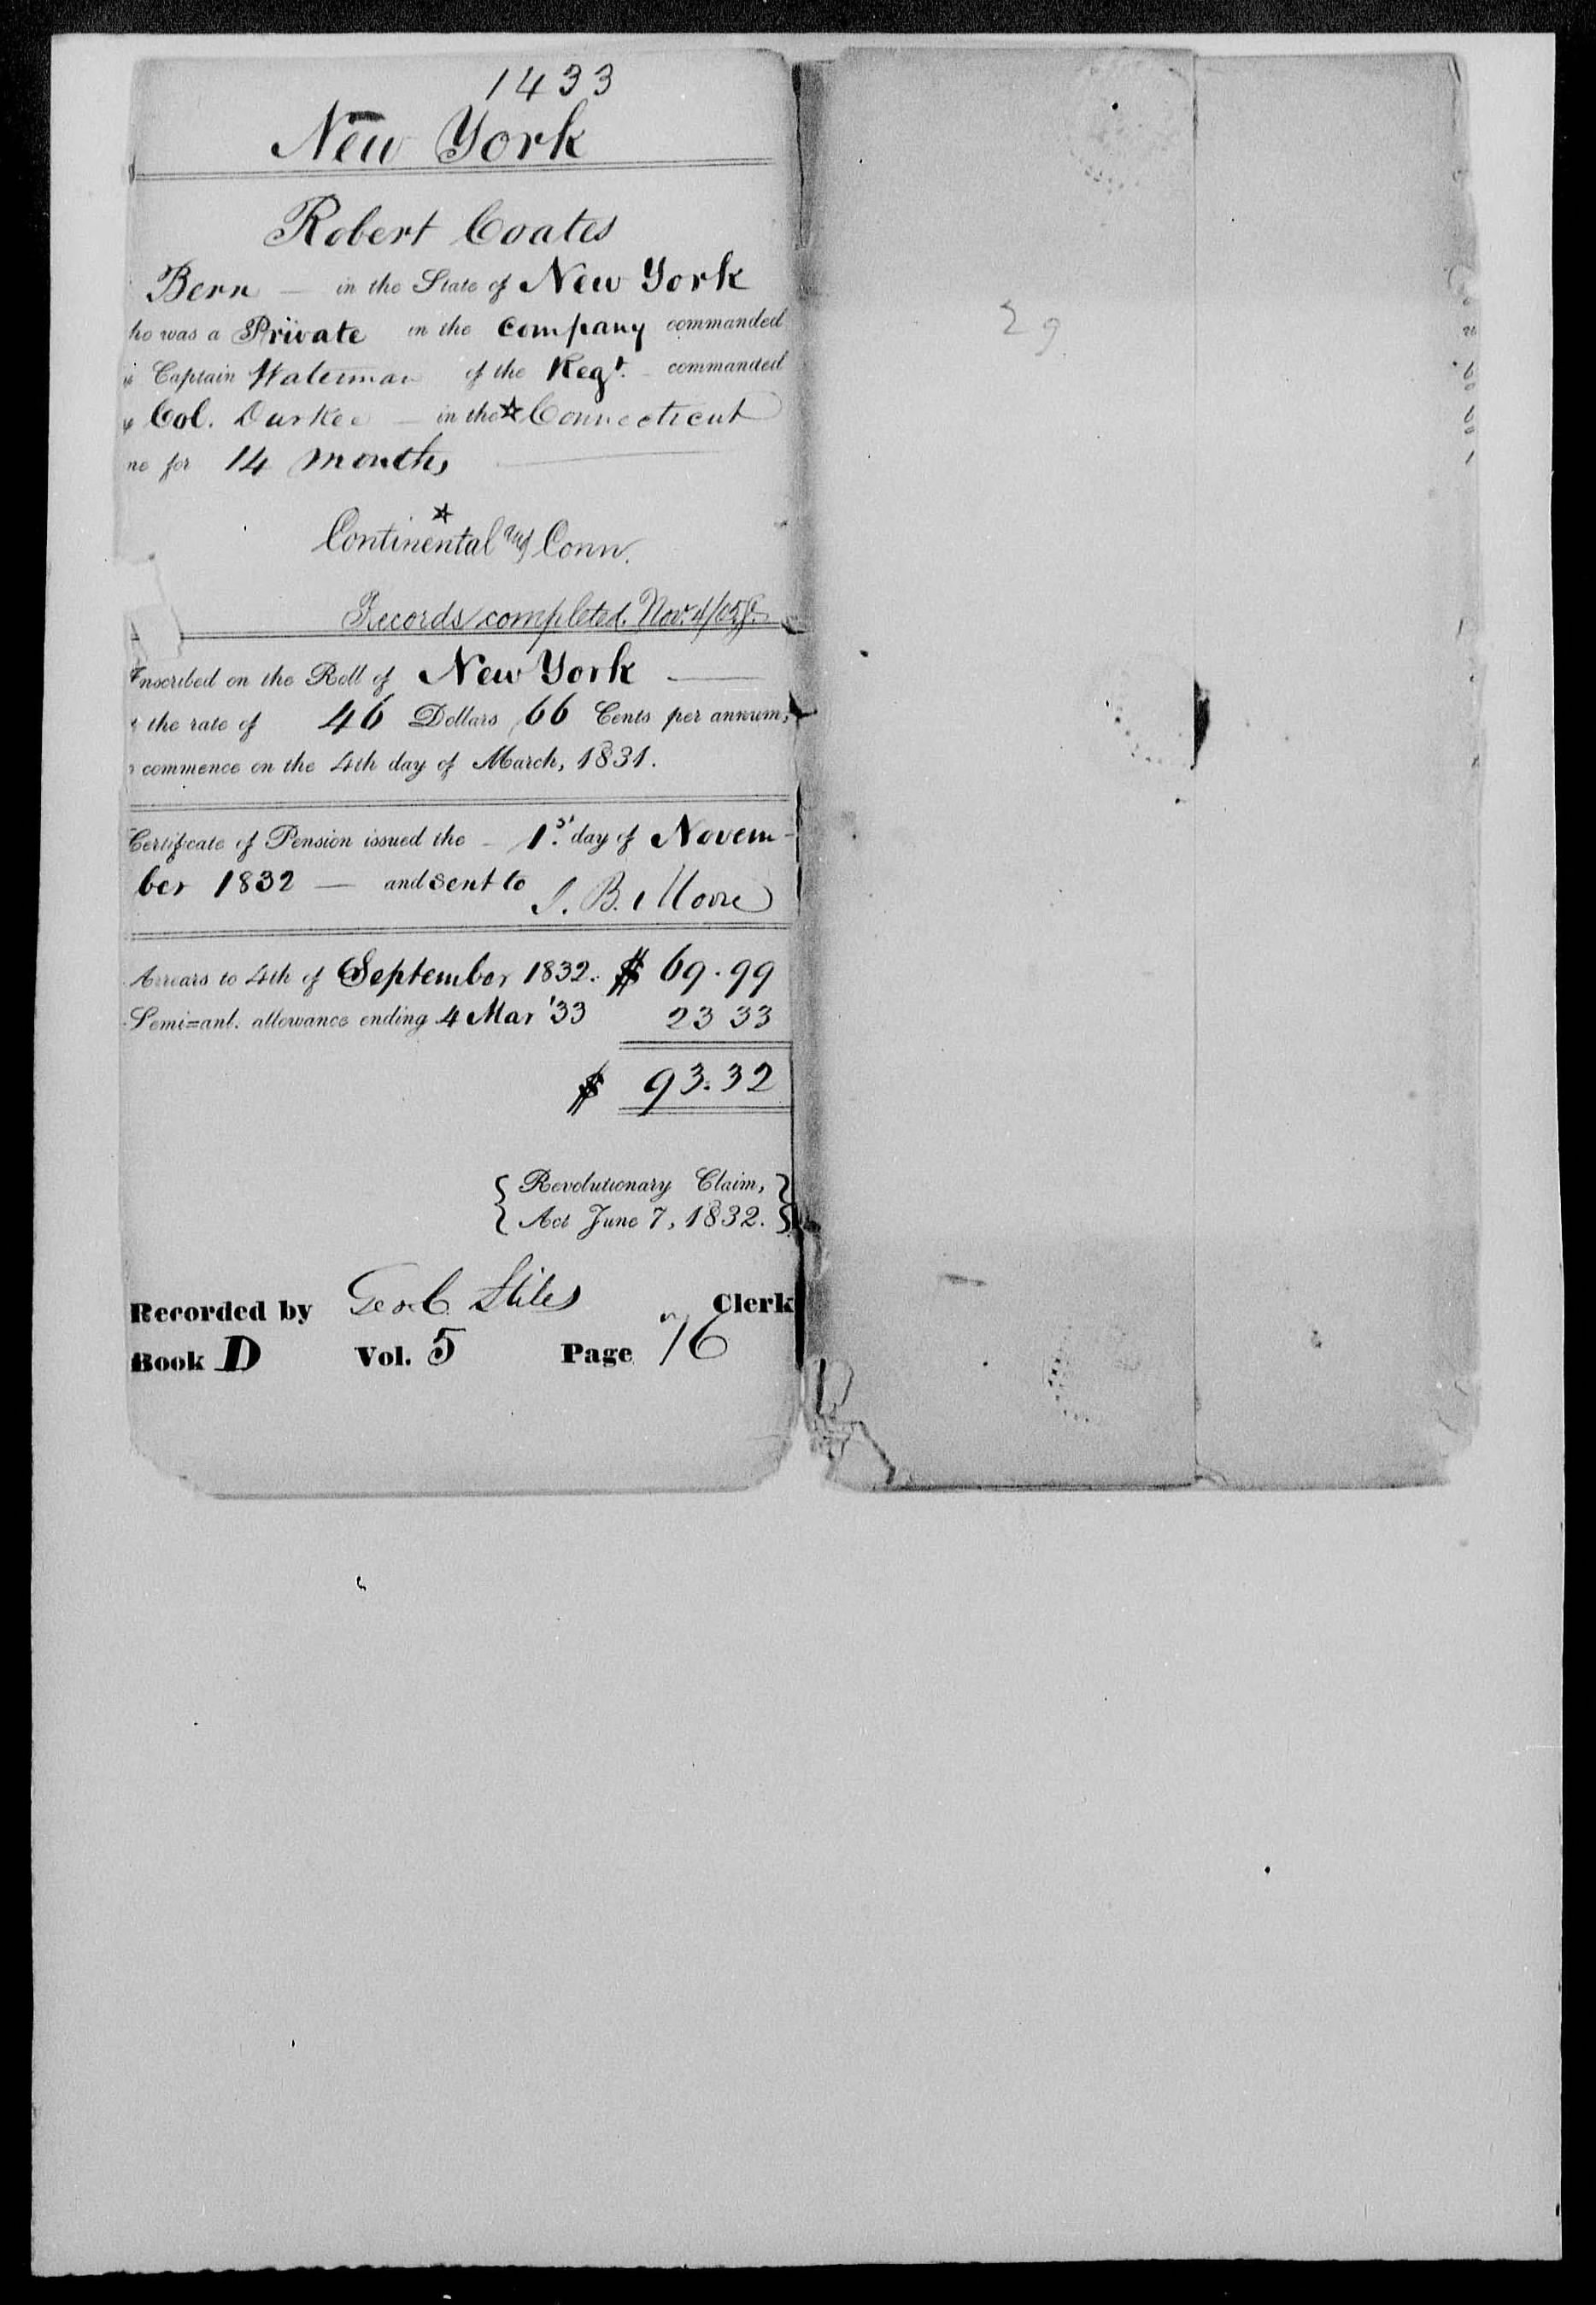 1433
New York
Robert Coates
Bern — in the State of New York
ho was a Private in the company commanded
Captain Waterman of the Regt. commanded
Col. Durkee — in the ☆ Connecticut
ne for 14 months
☆
Continental and Conn.
Records completed. Nov. 4/05
Inscribed on the Roll of New York —
the rate of 46 Dollars 66 Cents per annum,
commence on the 4th day of March, 1831.
Certificate of Pension issued the – 1st day of Novem-
ber 1832 — and sent to
B. Moore
Arrears to 4th of September 1832. $ 69.99
Semi=anl. allowance ending 4 Mar '33 23 33
$ 93.32
{ Revolutionary Claim, }
{ Act June 7, 1832. }
Recorded by Geo. C. Stiles Clerk
Book D Vol. 5 Page 76
29